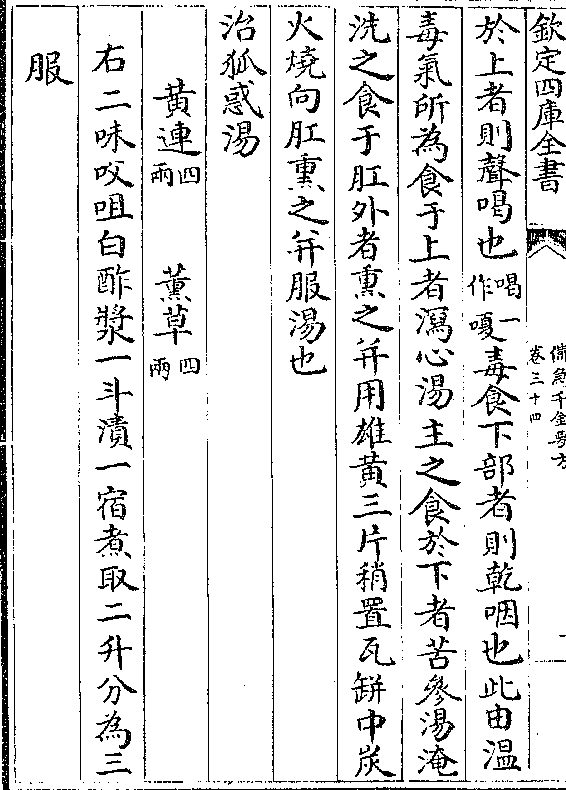 欽定四庫全書
備急千金要方
卷三十四
於上者則聲喝也喝一作嗄毒食下部者則乾咽也此由温
毒氣所為食于上者瀉心湯主之食於下者苦參湯淹
洗之食于肛外者熏之并用雄黃三片稍置瓦缾中炭
火燒向肛熏之并服湯也
治狐惑湯
黃連四兩 薰草四兩
右二味㕮咀白酢漿一斗漬一宿煮取二升分為三
服